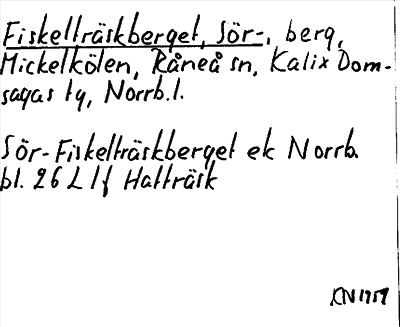 Fiskelträskberget, Sör-, berg,
Mickelkölen, Råneå sn, Kalix Dom-
sagas tg, Norrb.l.
Sör-Fiskelträskberget ek Norrb.
bl. 26 L 1f Hatträsk
KN 1959